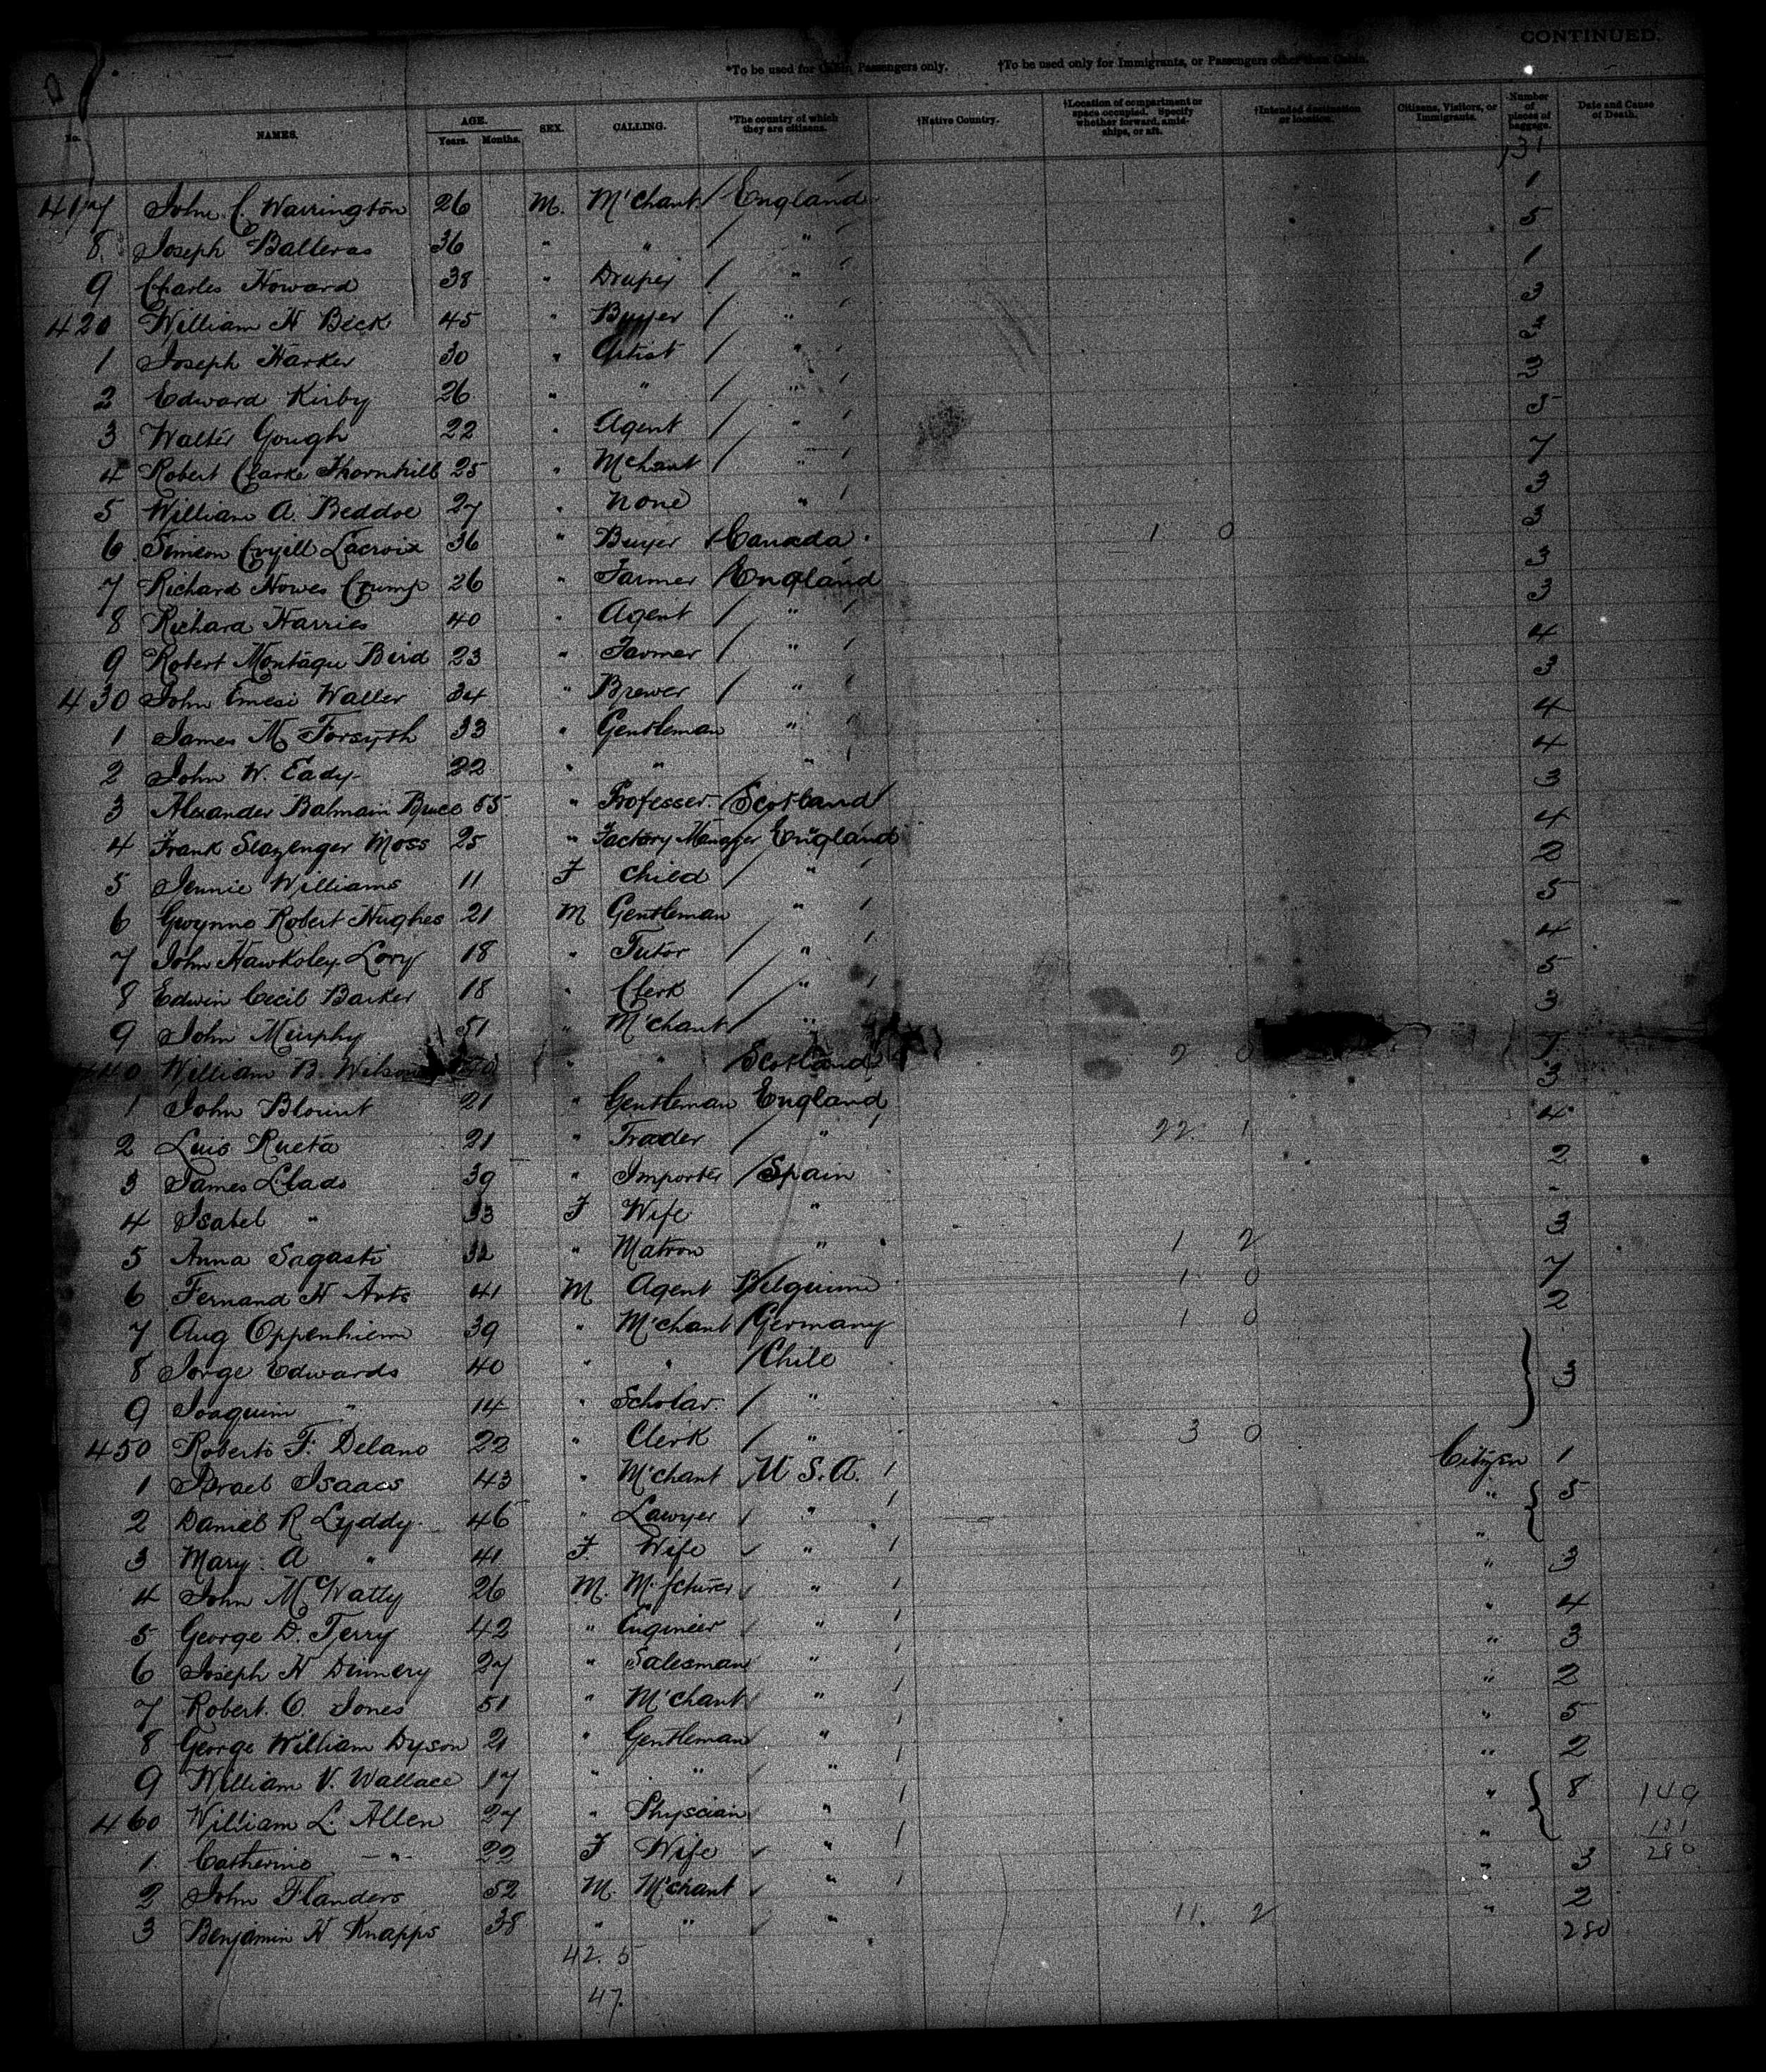 CONTINUED.
*To be used for Cabin Passengers only. †To be used only for Immigrants, or Passengers other than Cabin.
No. NAMES. AGE. Years. Months. SEX. CALLING. *The country of which they are citizens. †Native Country. †Location of compartment or space occupied. Specify whether forward, amidships, or aft. †Intended destination or location. Citizens, Visitors, or Immigrants. Number of pieces of baggage. Date and Cause of Death.
131
417 John C. Warrington 26 M. M'chant / England 1
8 Joseph Balleras 36 " " / " 5
9 Charles Howard 38 " Draper / " 1
420 William H Beck 45 " Buyer / " 3
1 Joseph Harker 30 " Artist / "
2 Edward Kirby 26 " " / " 3
3 Walter Gough 22 " Agent / " 5
4 Robert Clarke Thornhill 25 " M'chant / " 7
5 William A. Beddoe 27 " None " 3
6 Simeon Cryill Lacroix 36 " Buyer / Canada 1 0 3
7 Richard Howes Crump 26 " Farmer / England 3
8 Richard Harries 40 " Agent / " 3
9 Robert Montague Bird 23 " Farmer / " 4
430 John Emesi Waller 34 " Brewer / " 3
1 James M Forsyth 33 " Gentleman " 4
2 John W. Eady 22 " " " 4
3 Alexander Balmain Bruce 55 " Professer / Scotland 3
4 Frank Slazenger Moss 25 " Factory Manager England 4
5 Jennie Williams 11 F Child / " 2
6 Gwynno Robert Hughes 21 M Gentleman " 5
7 John Hawksley Lory 18 " Tutor / " 4
8 Edwin Cecil Barker 18 " Clerk / " 5
9 John Murphy 51 " M'chant / " 3
440 William B. Wilson " " Scotland 2 0 7
1 John Blount 21 " Gentleman England 3
2 Luis Rueta 21 " Trader / " 22 1 4
3 James Llado 39 " Importer / Spain 2
4 Isabel " 33 F Wife " -
5 Anna Sagasti 32 " Matron " 1 2 3
6 Fernand H Arts 41 M Agent Belguim 1 0 7
7 Aug Oppenhiem 39 " M'chant / Germany 1 0 2
8 Jorge Edwards 40 " " / Chile 3
9 Joaquim " 14 " Scholar / "
450 Roberto F. Delano 22 " Clerk / " 3 0 1
1 Israel Isaacs 43 " M'chant / U S. A. Citizen 5
2 Daniel R Lyddy 46 " Lawyer / " "
3 Mary A " 41 F. Wife " " 3
4 John McWatty 26 M. M'fcturer " " 4
5 George D. Terry 42 " Engineer " " 3
6 Joseph H Dinnery 27 " Salesman " " 2
7 Robert O. Jones 51 " M'chant " " 5
8 George William Dyson 21 " Gentleman " " 2
9 William V. Wallace 17 " " " " 8
460 William L. Allen 27 " Physcian " " 149
1 Catherine " 22 F Wife " " 3 131
2 John Flanders 52 M. M'chant " " 2 280
3 Benjamin H Knapps 38 " " " 11 2 " 280
42. 5
47.